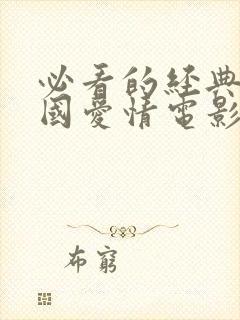 必看的經典
國愛情電影
布窮